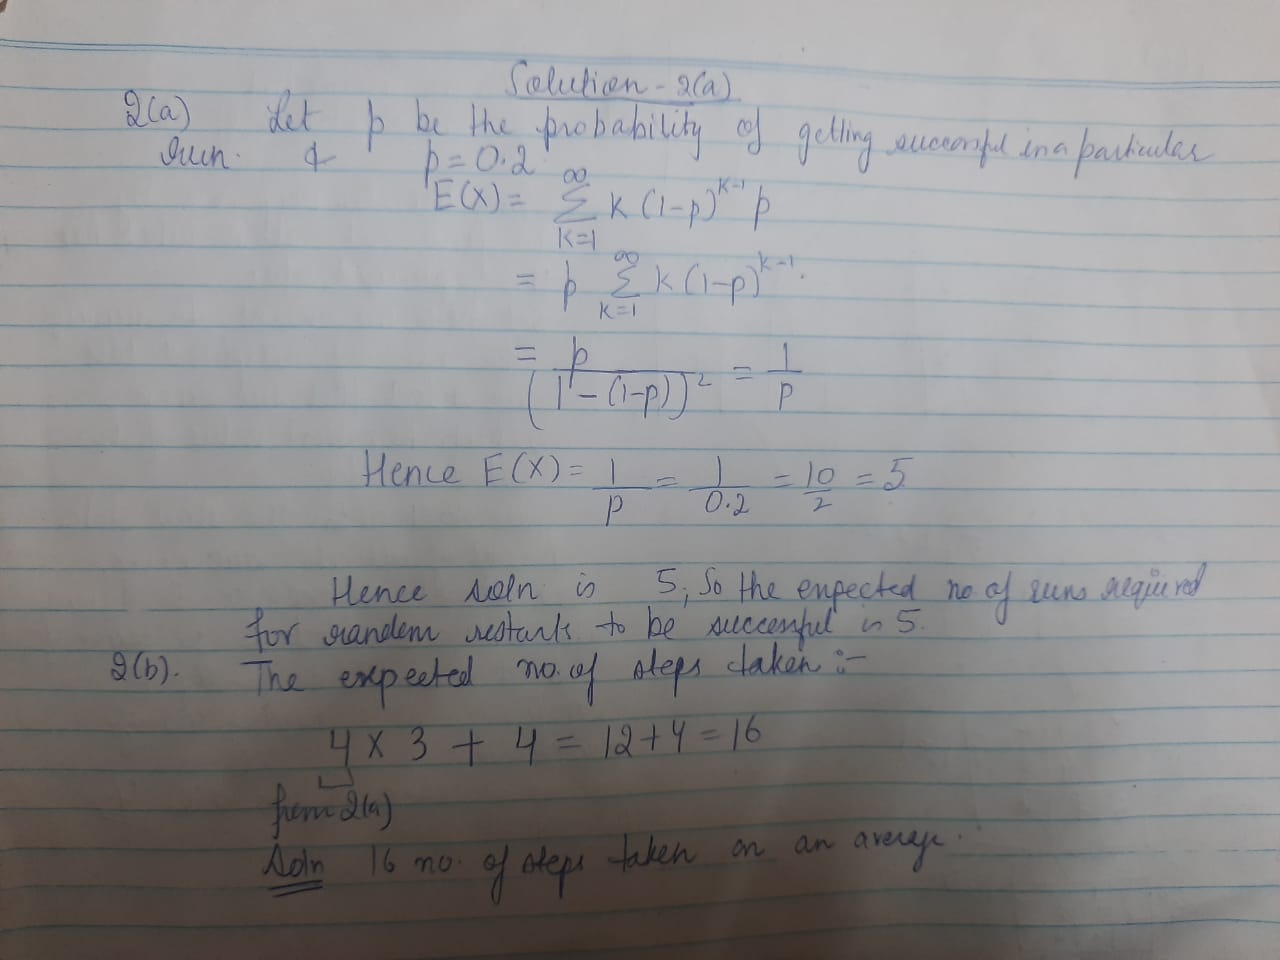 Solution - 2(a)
2(a) Let p be the probability of getting successful in a particular
run. & p = 0.2
E(X) = ∞ Σ k=1 k (1-p)^k-1 p
= p ∞ Σ k=1 k (1-p)^k-1.
= p / (1-(1-p))² = 1/p
Hence E(X) = 1/p = 1/0.2 = 10/2 = 5
Hence soln is 5, So the expected no of runs required
for random restarts to be successful is 5.
2(b). The expected no. of steps taken :-
4 x 3 + 4 = 12+4 = 16
from 2(a)
Soln 16 no. of steps taken on an average.